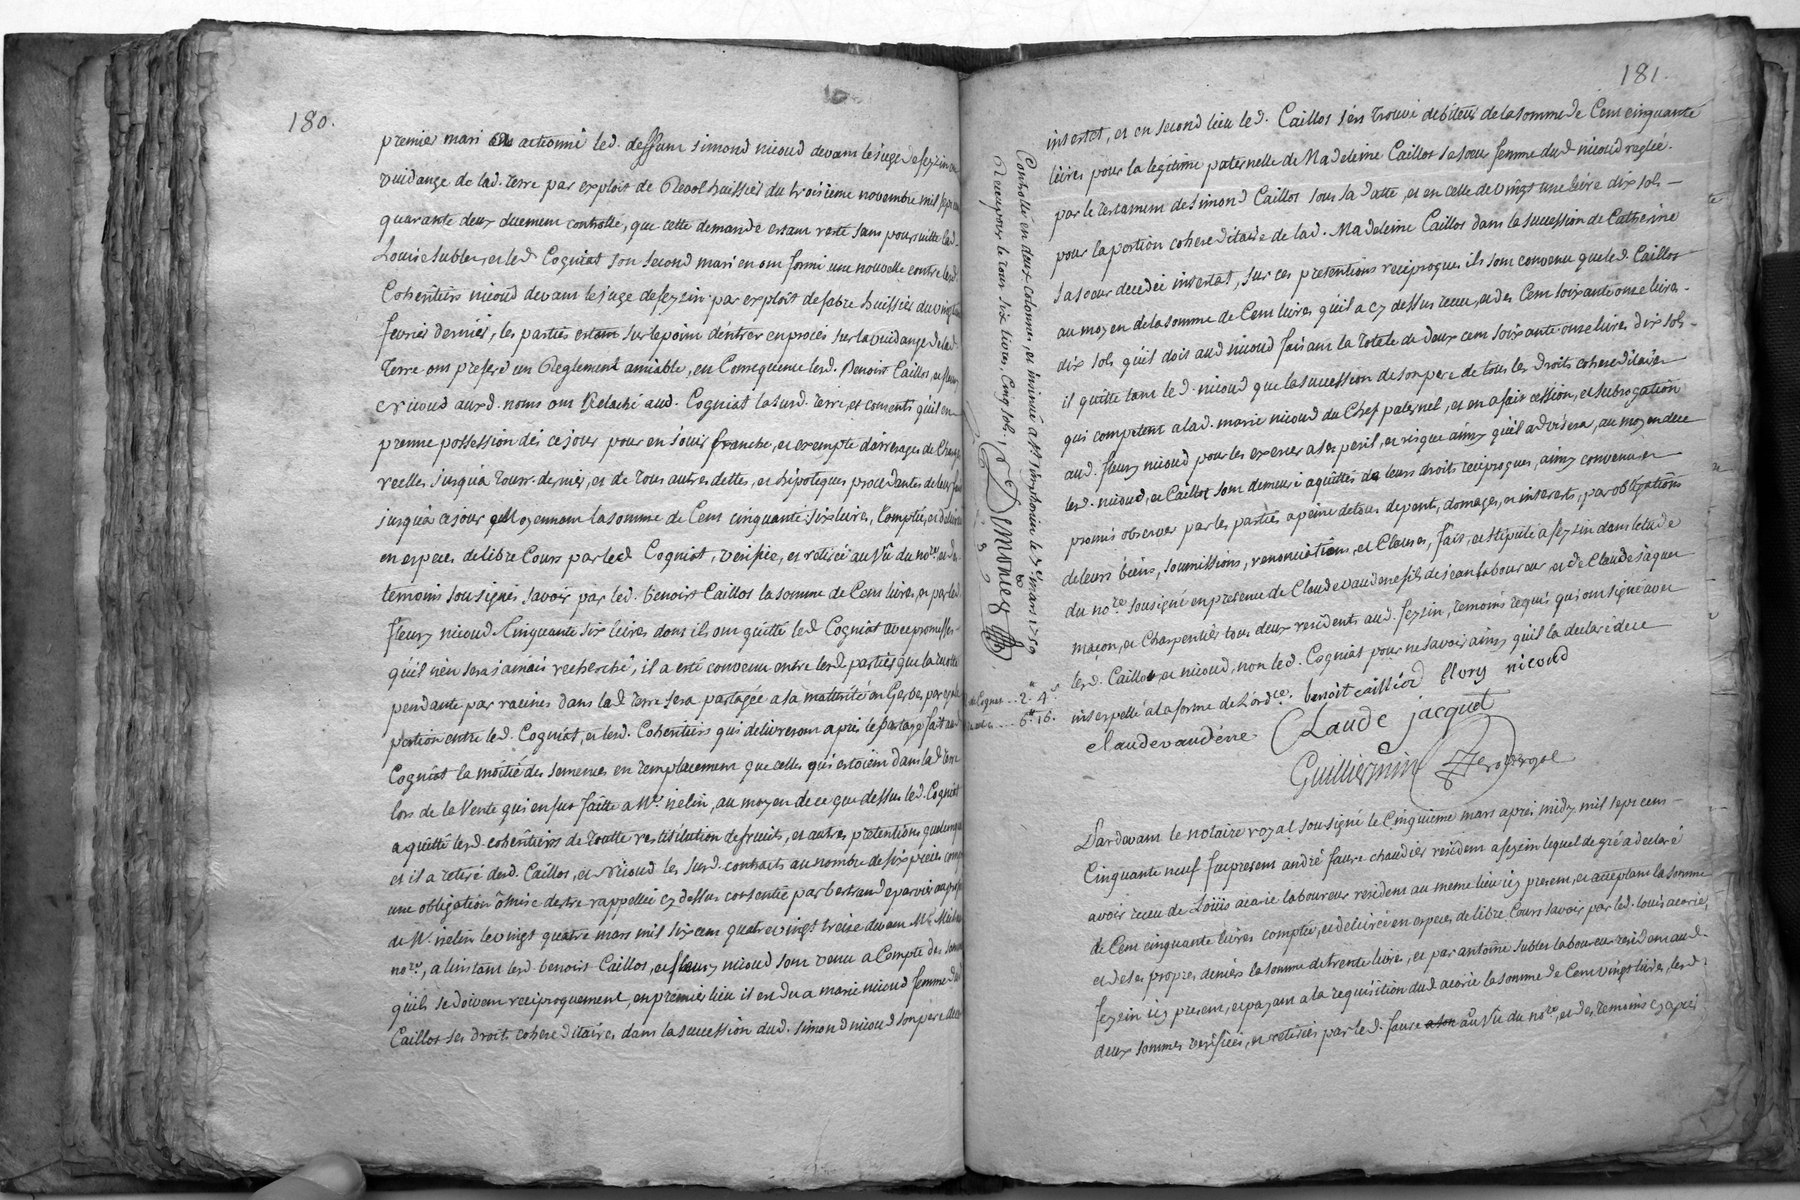 180.
premier mari a actionné led. deffunt simond nicoud devant le juge de feyzin en
vuidange de lad. terre par exploit de Revol huissier du troisieme novembre mil sept cent
quarante deux duement controllé, que cette demande estant resté sans poursuitte lad.
Louise sublet, et led Cogniat son second mari en ont formé une nouvelle contre lesd.
Cohéritiers nicoud devant le juge de feyzin par exploit de fabre huissier du vingt
fevrier dernier, les parties estant sur le point d'entrer en procés sur la vuidange de lad
terre ont preferé un Reglement amiable, en Consequence lesd. Benoist Caillot, et fleury
nicoud auxd. noms ont Relaché aud. Cogniat la susd. terre, et consenti qu'il en
prenne possession dés ce jour pour en jouir franche, et exempte d'arrerages de Charges
reelles jusqu'a tousst dernier, et de tous autres dettes, et hipoteques procedantes de leur fait
jusqu'a ce jour Moyennant la somme de Cent cinquante six livres, Comptée, et delivrée
en especes de libre Cours par led Cogniat, verifiée, et retirée au Vû du nore. et des
temoins sousignes savoir par led. benoist Caillot la somme de Cent livres, et par led.
fleury nicoud Cinquante six livres dont ils ont quitté led Cogniat avec promesses
qu'il n'en sera jamais recherché, il a esté convenu entre lesd parties que la recolte
pendante par racines dans lad terre sera partagée a sa matturité en Gerbes par egale
portion entre led. Cogniat, et lesd. Cohéritiers qui delivreront aprés le partage fait aud
Cogniat la moitié des semences en remplacement que celles qui estoient dans lad terre
lors de la Vente qui en fut faitte a Mr. nelin, au moyen de ce que dessus led. Cogniat
a quitté lesd. cohéritiers de toutte restitution de fruits, et autres pretentions quelconques
et il a retiré desd. Caillot, et nicoud les susd. contracts au nombre de six pieces comme
une obligation omise d'estre rappellée cy dessus consentie par bertrand eparvier au profit
de Mr. nelin le vingt quatre mars mil six cent quatre vingt treise devant Me.
nore, a l'instant lesd benoist Caillot, et fleury nicoud sont venu a Compte des sommes
qu'ils se doivent reciproquement, en premier lieu il est du a marie nicoud femme dud
Caillot ses droits cohereditaires dans la succession dud. simond nicoud son pere decedé
181.
intestat, et en second lieu led. Caillot s'est trouvé débiteur de la somme de Cent cinquante
livres pour la legitime paternelle de Madeleine Caillot sa sœur femme dud nicoud reglée
par le testament de simond Caillot sous sa datte, et en celle de vingt une livre dix sols
pour la portion cohereditaire de lad. Madeleine Caillot dans la succession de Catherine
sa sœur decedée intestat, sur ces pretentions reciproques ils sont convenu que led. Caillot
au moyen de la somme de Cent livres qu'il a cy dessus receu, et des Cent soixante onze livres
dix sols qu'il doit aud nicoud faisant la totale de deux cent soixante onze livres dix sols
il quitte tant led. nicoud que la succession de son pere de tous les droits cohereditaires
qui competent a lad. marie nicoud du Chef paternel, et en a fait cession, et subrogation
aud. fleury nicoud pour les exercer a ses peril, et risque ainsy qu'il advisera, au moyen de ce
led. nicoud, et Caillot sont demeuré aquittés de leurs droits reciproques, ainsy convenu et
promis observer par les parties a peine de tous depent, domages, et interests, par obligations
de leurs biens, soumissions, renonciations, et Clauses, fait, et stipulé a feyzin dans l'etude
du nore. sousigné en presence de Claude vaudene fils de jean laboureur et de Claude jaquet
maçon, et Charpentier tous deux residents aud. feyzin, temoins requis qui ont signé avec
lesd. Caillot et nicoud, non led. Cogniat pour ne savoir ainsy qu'il l'a declaré de ce
interpellé a la forme de l'ordce.
benoit cailliod fleury nicoud
claude vaudene Claude jacquet
Guilliermin
Controllé en deux colonnes, et insinué a st. simphorien le 7e. mars 1759
Receu pour le tout six livres, Cinq sols
Demoney
2lt 4s
6lt 16
Pardevant le notaire royal sousigné le Cinquieme mars aprés midy mil sept cent
Cinquante neuf fut present andré faure chaudier resident a feyzin lequel de gré a declaré
avoir receu de Loüis acarie laboureur resident au meme lieu icy present, et acceptant la somme
de Cent cinquante livres comptée, et delivrée en especes de libre Cours savoir par led. louis acarie,
et de ses propres deniers la somme de trente livre, et par antoine sublet laboureur resident aud.
feyzin icy present, et payant a la requisition dud acarie la somme de Cent vingt livres, lesd
deux sommes verifiées, et retirées par led. faure au Vû du nore. et des temoins cy aprés